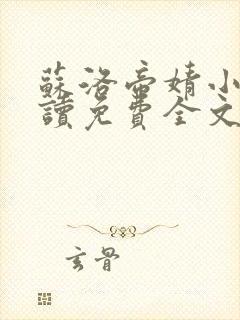 蘇洛帝婧小
讀免費全文
玄骨